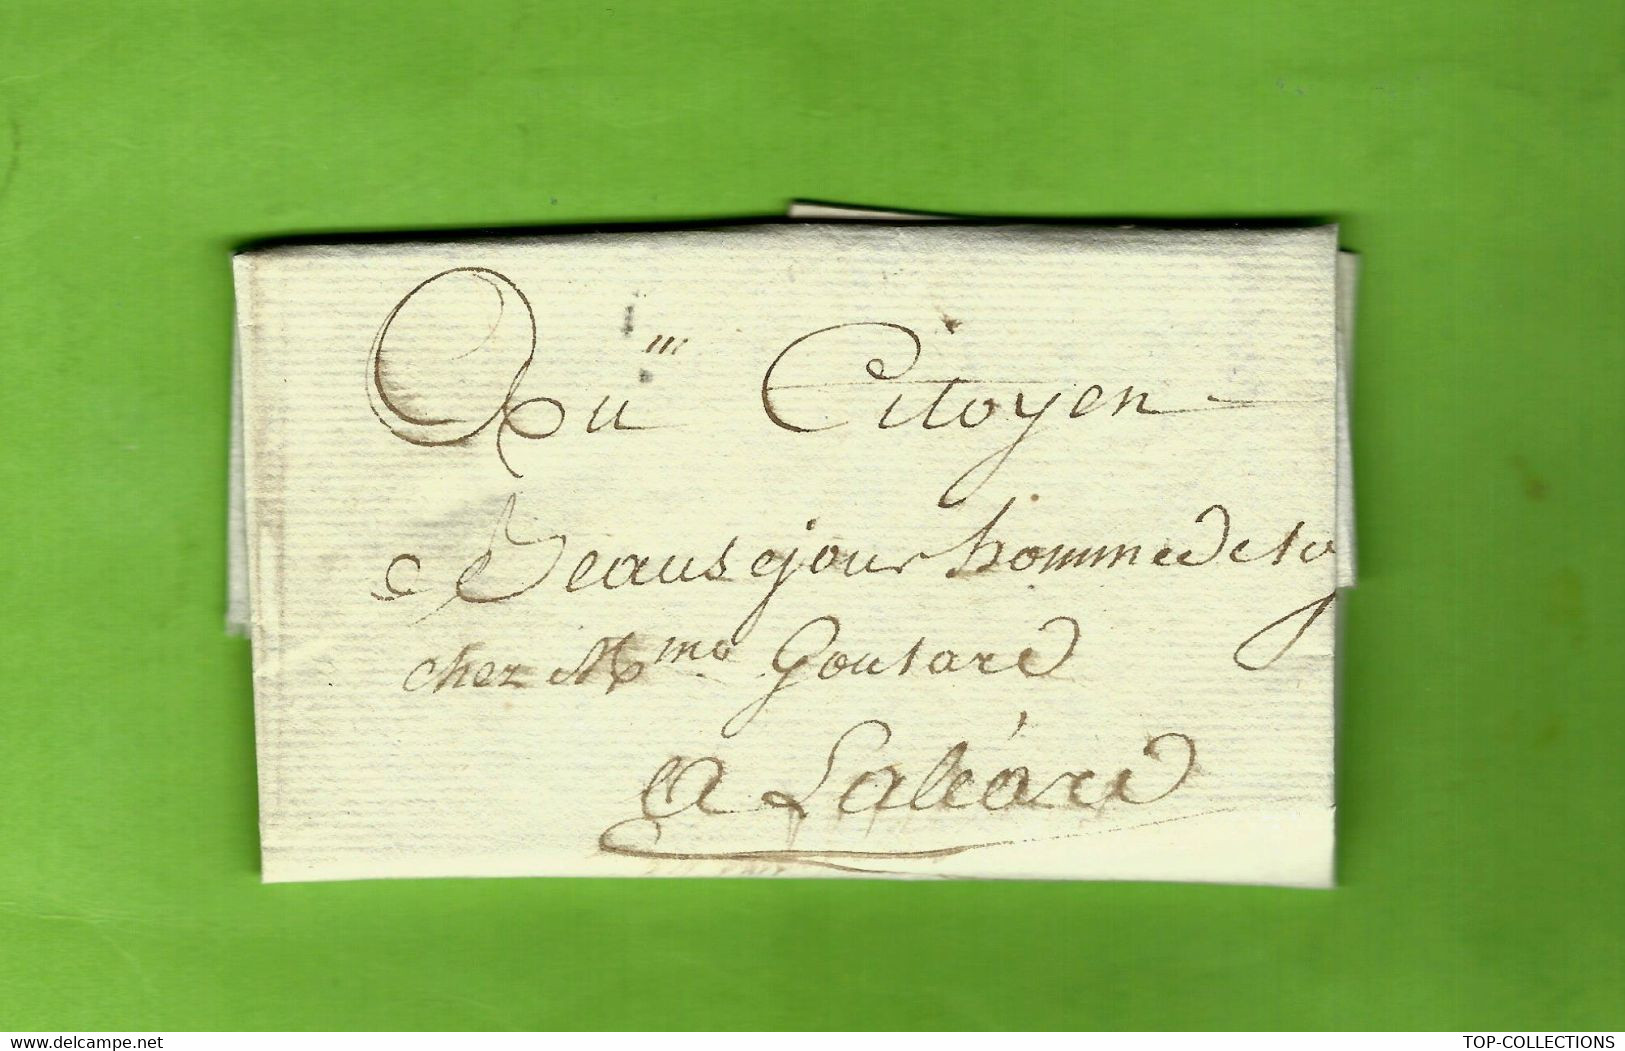 Au Citoyen
Beausejour homme de loy
chez Mme Goutard
a
www.delcampe.net
TOP-COLLECTIONS